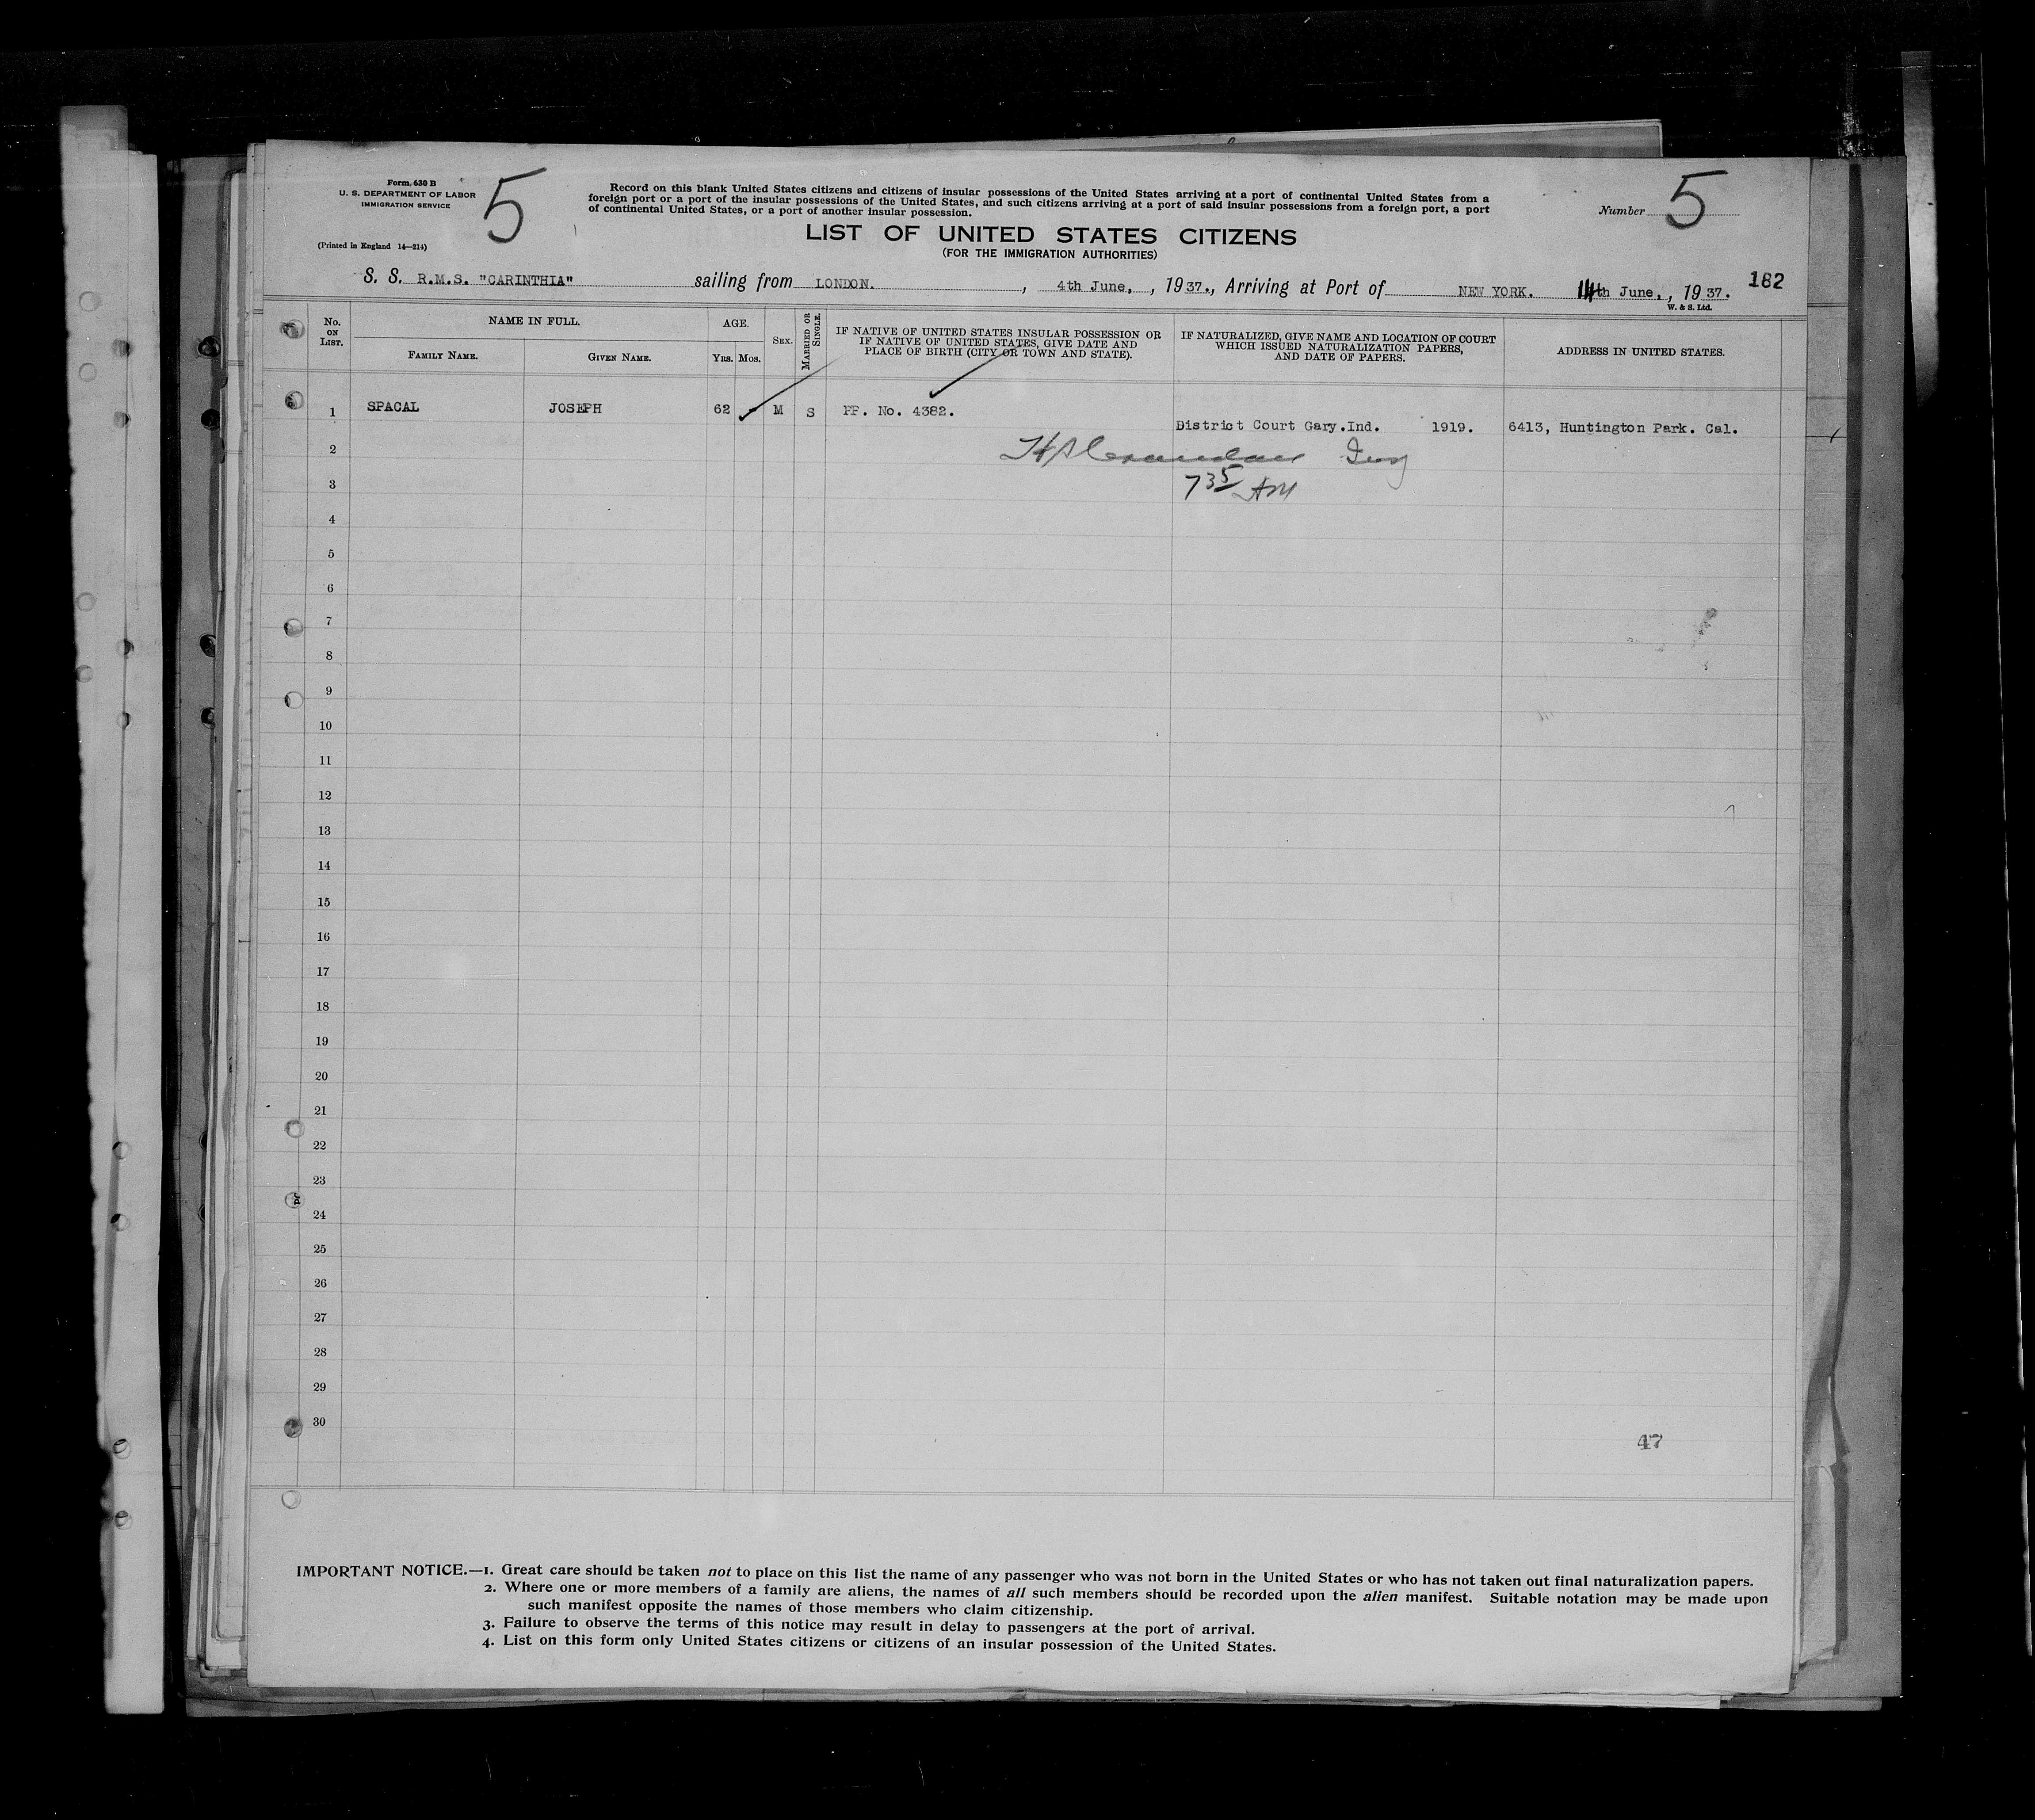 Form 630 B
U. S. DEPARTMENT OF LABOR
IMMIGRATION SERVICE
(Printed in England 14—214)
5
Record on this blank United States citizens and citizens of insular possessions of the United States arriving at a port of continental United States from a
foreign port or a port of the insular possessions of the United States, and such citizens arriving at a port of said insular possessions from a foreign port, a port
of continental United States, or a port of another insular possession.
Number 5
LIST OF UNITED STATES CITIZENS
(FOR THE IMMIGRATION AUTHORITIES)
S. S. R.M.S. "CARINTHIA" sailing from LONDON. , 4th June, , 1937., Arriving at Port of NEW YORK. th June, , 1937.
182
W. & S. Ltd.
No. ON LIST.
NAME IN FULL.
FAMILY NAME.
GIVEN NAME.
AGE.
YRS. MOS.
SEX.
MARRIED OR SINGLE.
IF NATIVE OF UNITED STATES INSULAR POSSESSION OR
IF NATIVE OF UNITED STATES, GIVE DATE AND
PLACE OF BIRTH (CITY OR TOWN AND STATE).
IF NATURALIZED, GIVE NAME AND LOCATION OF COURT
WHICH ISSUED NATURALIZATION PAPERS,
AND DATE OF PAPERS.
ADDRESS IN UNITED STATES.
1 SPACAL JOSEPH 62 - M S PP. No. 4382.
District Court Gary.Ind. 1919. 6413, Huntington Park. Cal.
2
3 7 35 AM
4
5
6
7
8
9
10
11
12
13
14
15
16
17
18
19
20
21
22
23
24
25
26
27
28
29
30
47
IMPORTANT NOTICE.—1. Great care should be taken not to place on this list the name of any passenger who was not born in the United States or who has not taken out final naturalization papers.
2. Where one or more members of a family are aliens, the names of all such members should be recorded upon the alien manifest. Suitable notation may be made upon
such manifest opposite the names of those members who claim citizenship.
3. Failure to observe the terms of this notice may result in delay to passengers at the port of arrival.
4. List on this form only United States citizens or citizens of an insular possession of the United States.